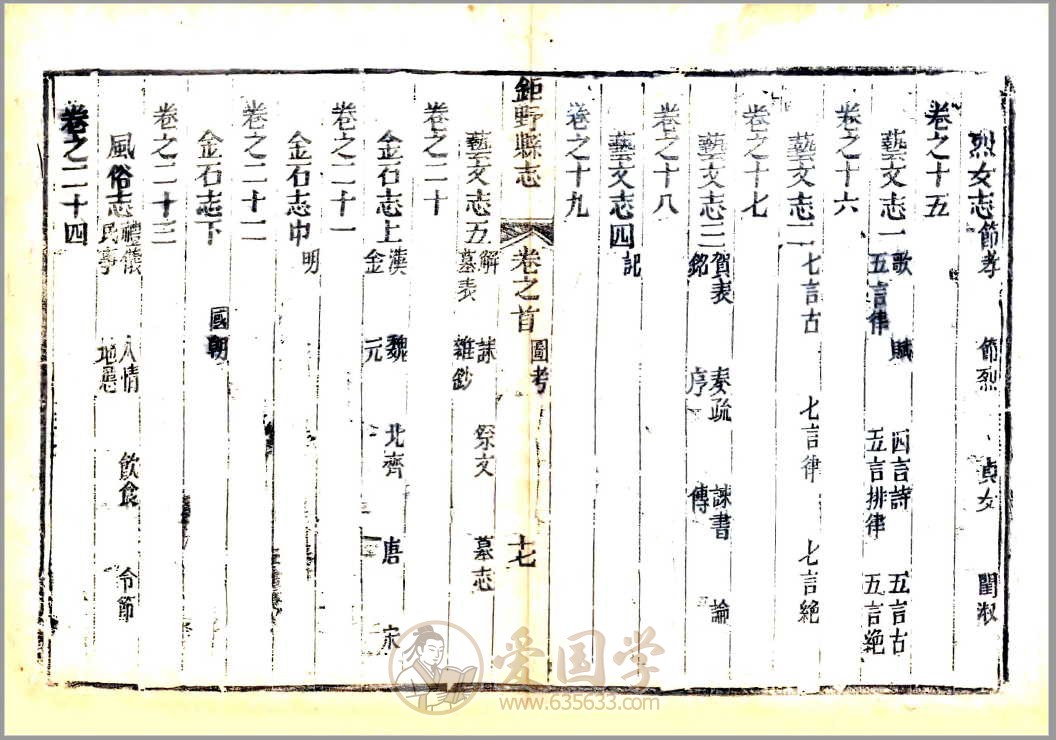 烈女志 節孝 節烈 貞女 閨淑
卷之十五
藝文志一 歌 賦 四言詩 五言古
五言律 五言排律 五言絶
卷之十六
藝文志二 七言古 七言律 七言絶
卷之十七
藝文志三 賀表 奏疏 諫書 論
銘 序 傳
卷之十八
藝文志四 記
卷之十九
鉅野縣志 卷之首 圖考 十七
藝文志五 解 誄 祭文 墓志
墓表 雜鈔
卷之二十
金石志上 漢 魏 北齊 唐 宋
金 元
卷之二十一
金石志中 明
卷之二十二
金石志下 國朝
卷之二十三
風俗志 禮儀 人情 飲食 令節
民事
卷之二十四
爱国学
www.635633.com